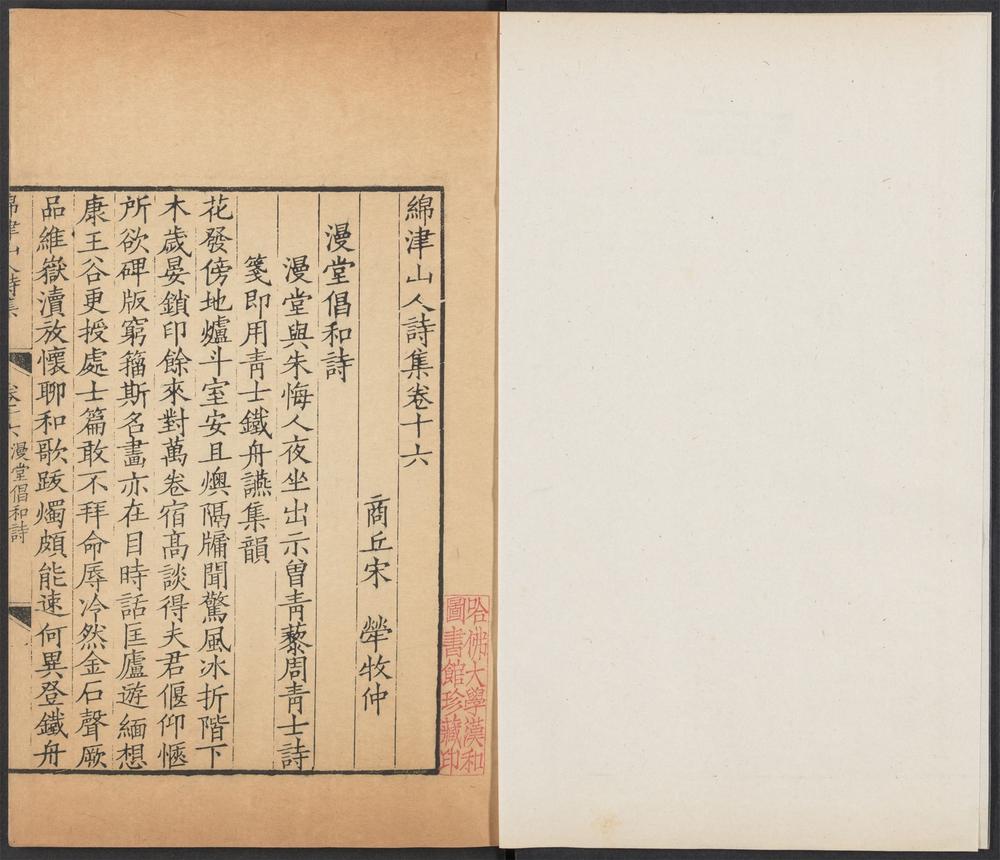 綿津山人詩集卷十六
商丘宋 犖牧仲
漫堂倡和詩
漫堂與朱悔人夜坐出示曾青藜周靑士詩
箋即用靑士鐵舟讌集韻
花發傍地爐斗室安且燠隔牗聞驚風冰折階下
木歲晏鎖印餘來對萬卷宿高談得夫君偃仰愜
所欲碑版窮籕斯名畵亦在目時話匡廬遊緬想
康王谷更授處士篇敢不拜命辱冷然金石聲厥
品維嶽瀆放懷聊和歌跋燭頗能速何異登鐵舟
綿津山人詩集
卷十六
漫堂倡和詩
哈佛大學漢和
圖書館珍藏印